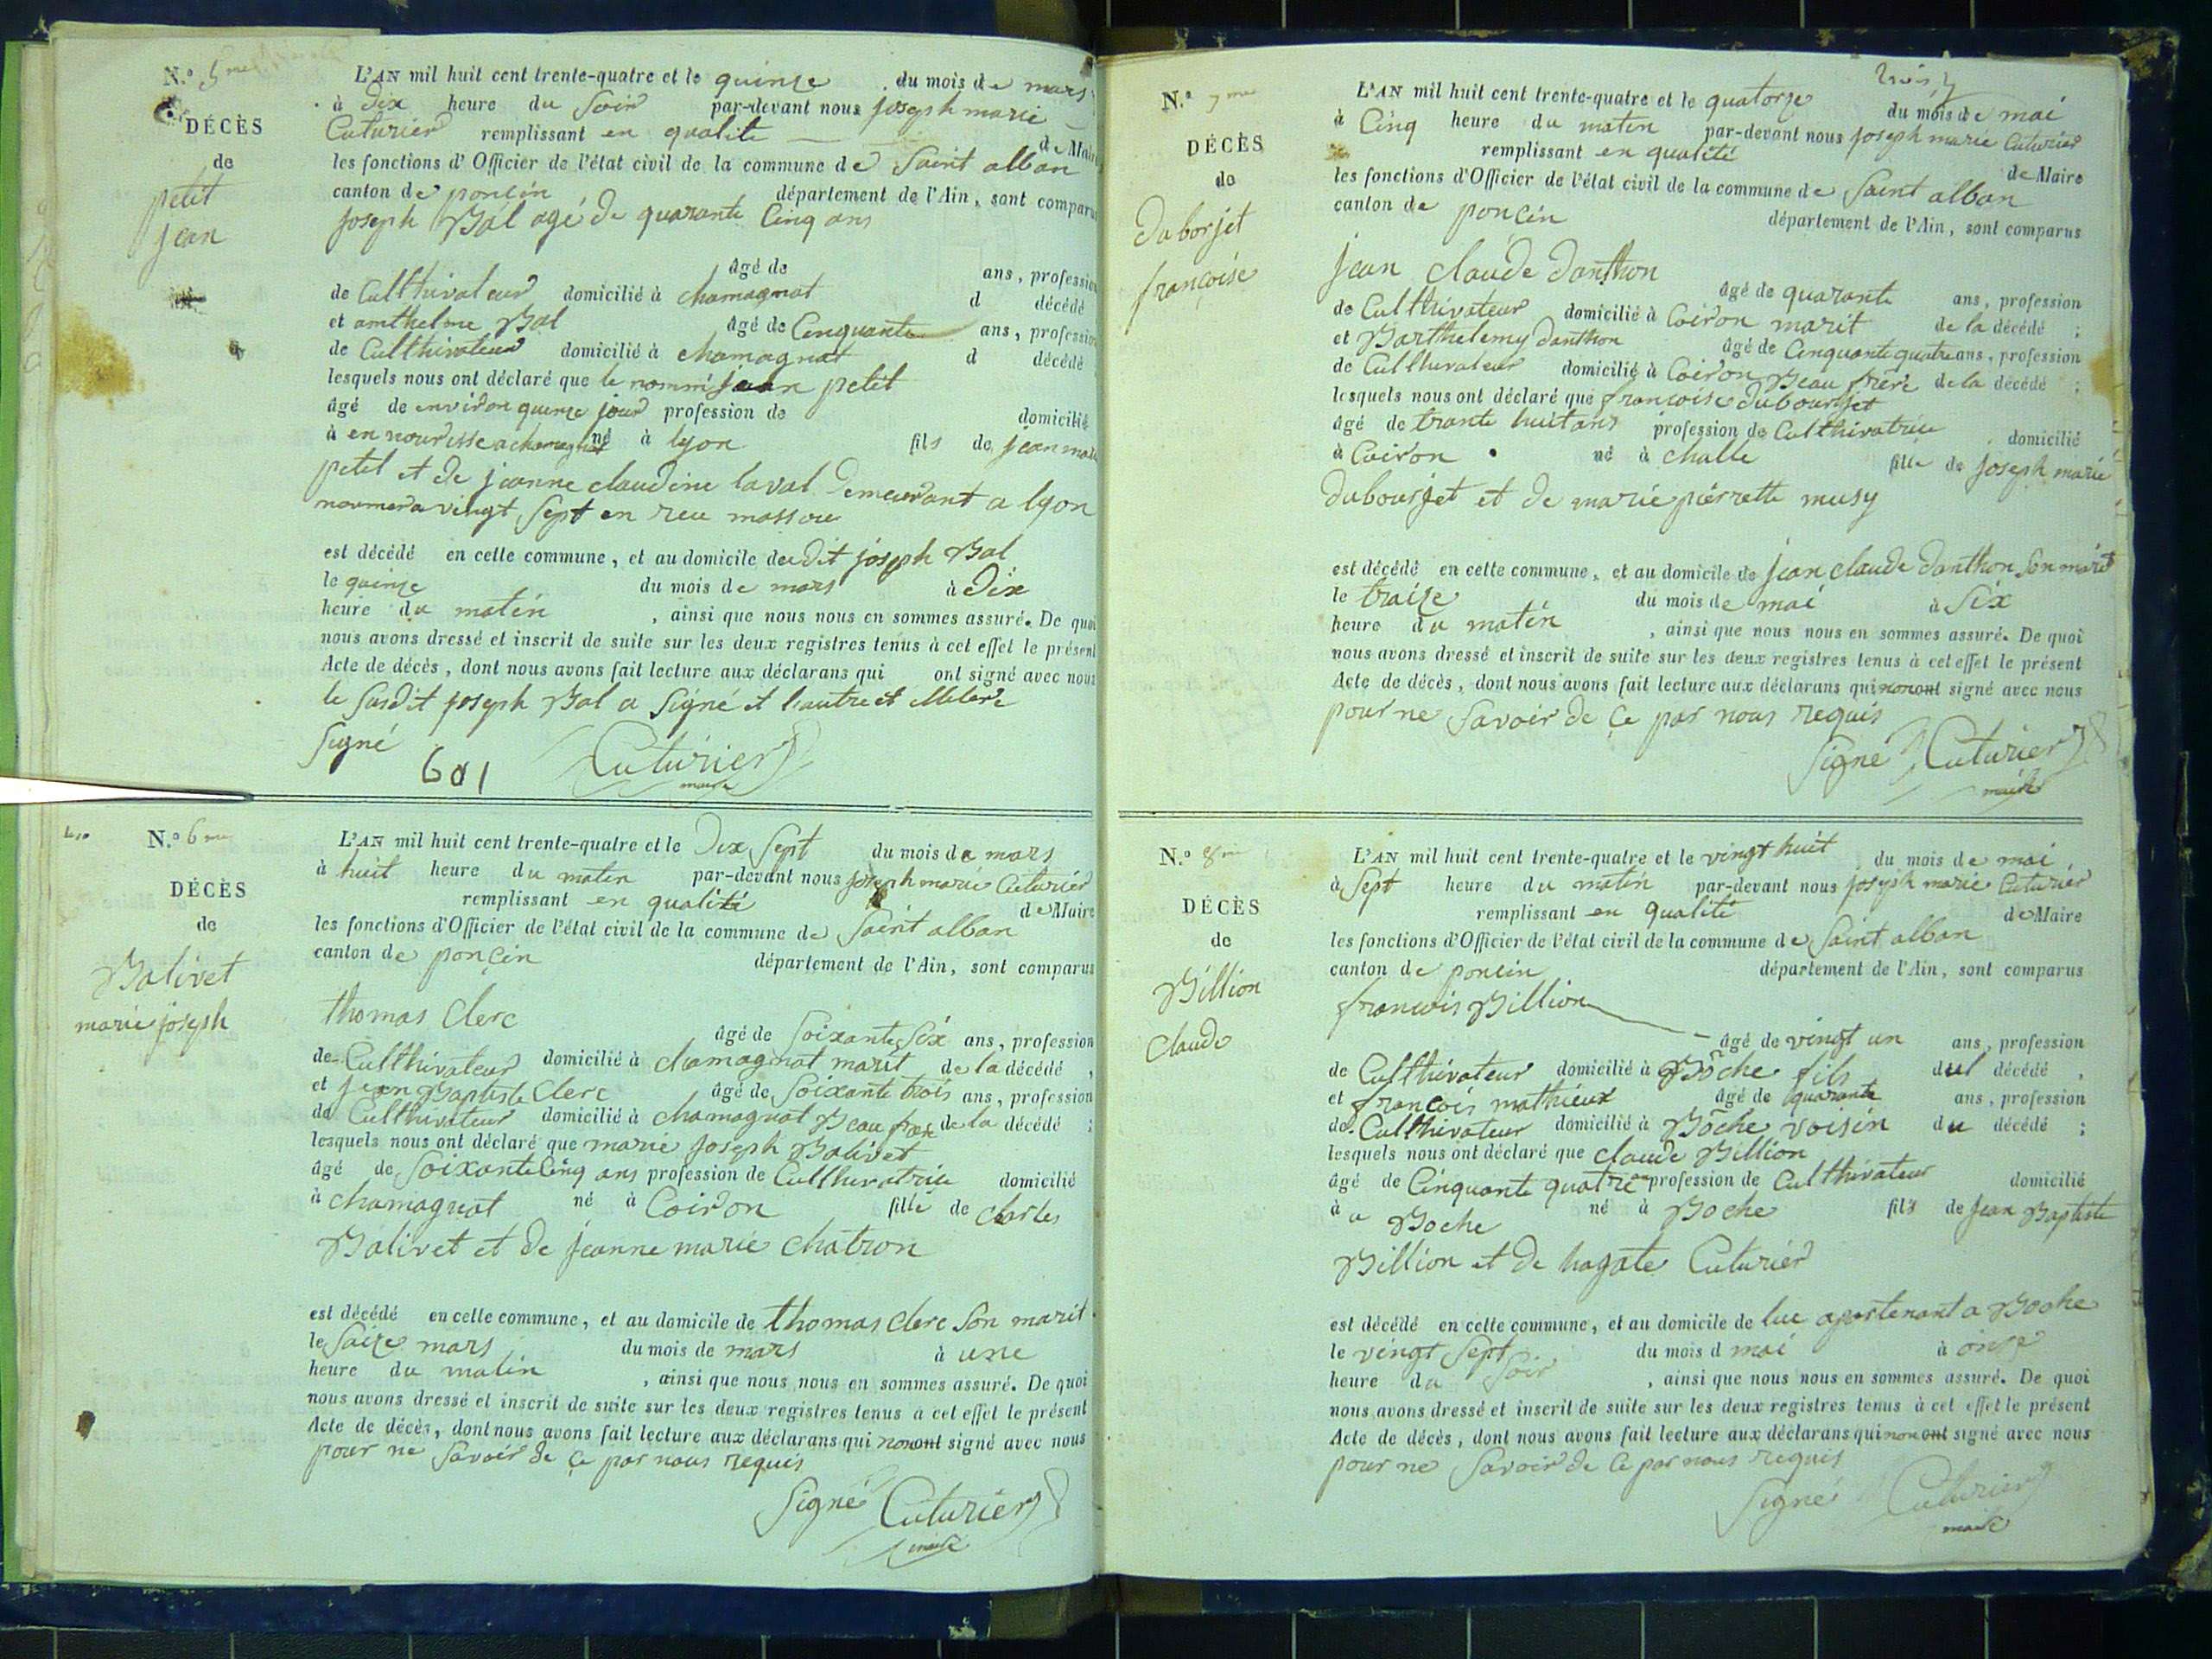 N.º 5me
DÉCÈS
de
petit
jean
L'AN mil huit cent trente-quatre et le quinze du mois de mars
à Dix heure du Soir par-devant nous joseph marie
Cuturier remplissant en qualite de Mair
les fonctions d'Officier de l'état civil de la commune de Saint alban
canton de poncin département de l'Ain, sont comparu
joseph Bal agé de quarante Cinq ans
âgé de ans, profession
de Culthivateur domicilié à chamagnat d décédé
et anthelme Bal âgé de Cinquante ans, profession
de Culthivateur domicilié à chamagnat d décédé
lesquels nous ont déclaré que le nommé jean petit
âgé de environ quinze jour profession de domicilié
à en nourisse a chamagnat né à lyon fils de jean
petit et de jeanne claudine laval Demeurant a lyon
numero vingt Sept en reu massou
est décédé en cette commune, et au domicile de dit joseph Bal
le quinze du mois de mars à Dix
heure du matin , ainsi que nous nous en sommes assuré. De quoi
nous avons dressé et inscrit de suite sur les deux registres tenus à cet effet le présent
Acte de décès, dont nous avons fait lecture aux déclarans qui ont signé avec nous
le Susdit joseph Bal a Signé et l'autre et
Signé
601 Cuturier
maire
N.º 6me
DÉCÈS
de
Balivet
marie joseph
L'AN mil huit cent trente-quatre et le Dix Sept du mois de mars
à huit heure du matin par-devant nous joseph marie Cuturier
remplissant en qualité de Maire
les fonctions d'Officier de l'état civil de la commune de Saint alban
canton de poncin département de l'Ain, sont comparus
thomas Clerc
âgé de Soixante Six ans, profession
de Culthivateur domicilié à chamagnat marit de la décédé ,
et jean Baptiste Clerc âgé de Soixante trois ans, profession
de Culthivateur domicilié à chamagnat Beau frere de la décédé ;
lesquels nous ont déclaré que marie joseph Balivet
âgé de Soixante Cinq ans profession de Culthivatrice domicilié
à chamagnat né à Coiron fille de charles
Balivet et de jeanne marie chatron
est décédé en cette commune, et au domicile de thomas Clerc Son marit
le Saize mars du mois de mars à une
heure du matin , ainsi que nous nous en sommes assuré. De quoi
nous avons dressé et inscrit de suite sur les deux registres tenus à cet effet le présent
Acte de décès, dont nous avons fait lecture aux déclarans qui non ont signé avec nous
pour ne Savoir de ce par nous requis
Signé Cuturier
maire
trois
N.º 7me
DÉCÈS
de
Duborjet
françoise
L'AN mil huit cent trente-quatre et le quatorze du mois de mai
à Cinq heure du matin par-devant nous joseph marie Cuturier
remplissant en qualité de Maire
les fonctions d'Officier de l'état civil de la commune de Saint alban
canton de poncin département de l'Ain, sont comparus
jean claude Danthon
âgé de quarante ans, profession
de Culthivateur domicilié à Coiron marit de la décédé ;
et Barthelemy Danthon âgé de Cinquante quatre ans, profession
de Culthivateur domicilié à Coiron Beau frere de la décédé ;
lesquels nous ont déclaré que françoise Dubourjet
âgé de trante huit ans profession de Culthivatrice domicilié
à Coiron né à challe fille de joseph marie
Dubourjet et de marie pierrette musy
est décédé en cette commune, et au domicile de jean claude Danthon Son marit
le traize du mois de mai à Six
heure du matin , ainsi que nous nous en sommes assuré. De quoi
nous avons dressé et inscrit de suite sur les deux registres tenus à cet effet le présent
Acte de décès, dont nous avons fait lecture aux déclarans qui non ont signé avec nous
pour ne Savoir de Ce par nous requis
Signé Cuturier
maire
N.º 8me
DÉCÈS
de
Billion
Claude
L'AN mil huit cent trente-quatre et le vingt huit du mois de mai
à Sept heure du matin par-devant nous joseph marie Cuturier
remplissant en qualité de Maire
les fonctions d'Officier de l'état civil de la commune de Saint alban
canton de poncin département de l'Ain, sont comparus
françois Billion
âgé de vingt un ans, profession
de Culthivateur domicilié à Bôche fils du décédé ,
et françois mathieux âgé de quarante ans, profession
de Culthivateur domicilié à Bôche voisin du décédé ;
lesquels nous ont déclaré que claude Billion
âgé de Cinquante quatre ans profession de Culthivateur domicilié
à a Boche né à Boche fils de jean Baptiste
Billion et de hagate Cuturier
est décédé en cette commune, et au domicile de luc apartenant a Boche
le vingt Sept du mois d mai à onze
heure du Soir , ainsi que nous nous en sommes assuré. De quoi
nous avons dressé et inscrit de suite sur les deux registres tenus à cet effet le présent
Acte de décès, dont nous avons fait lecture aux déclarans qui non ont signé avec nous
pour ne Savoir de Ce par nous requis
Signé Cuturier
maire